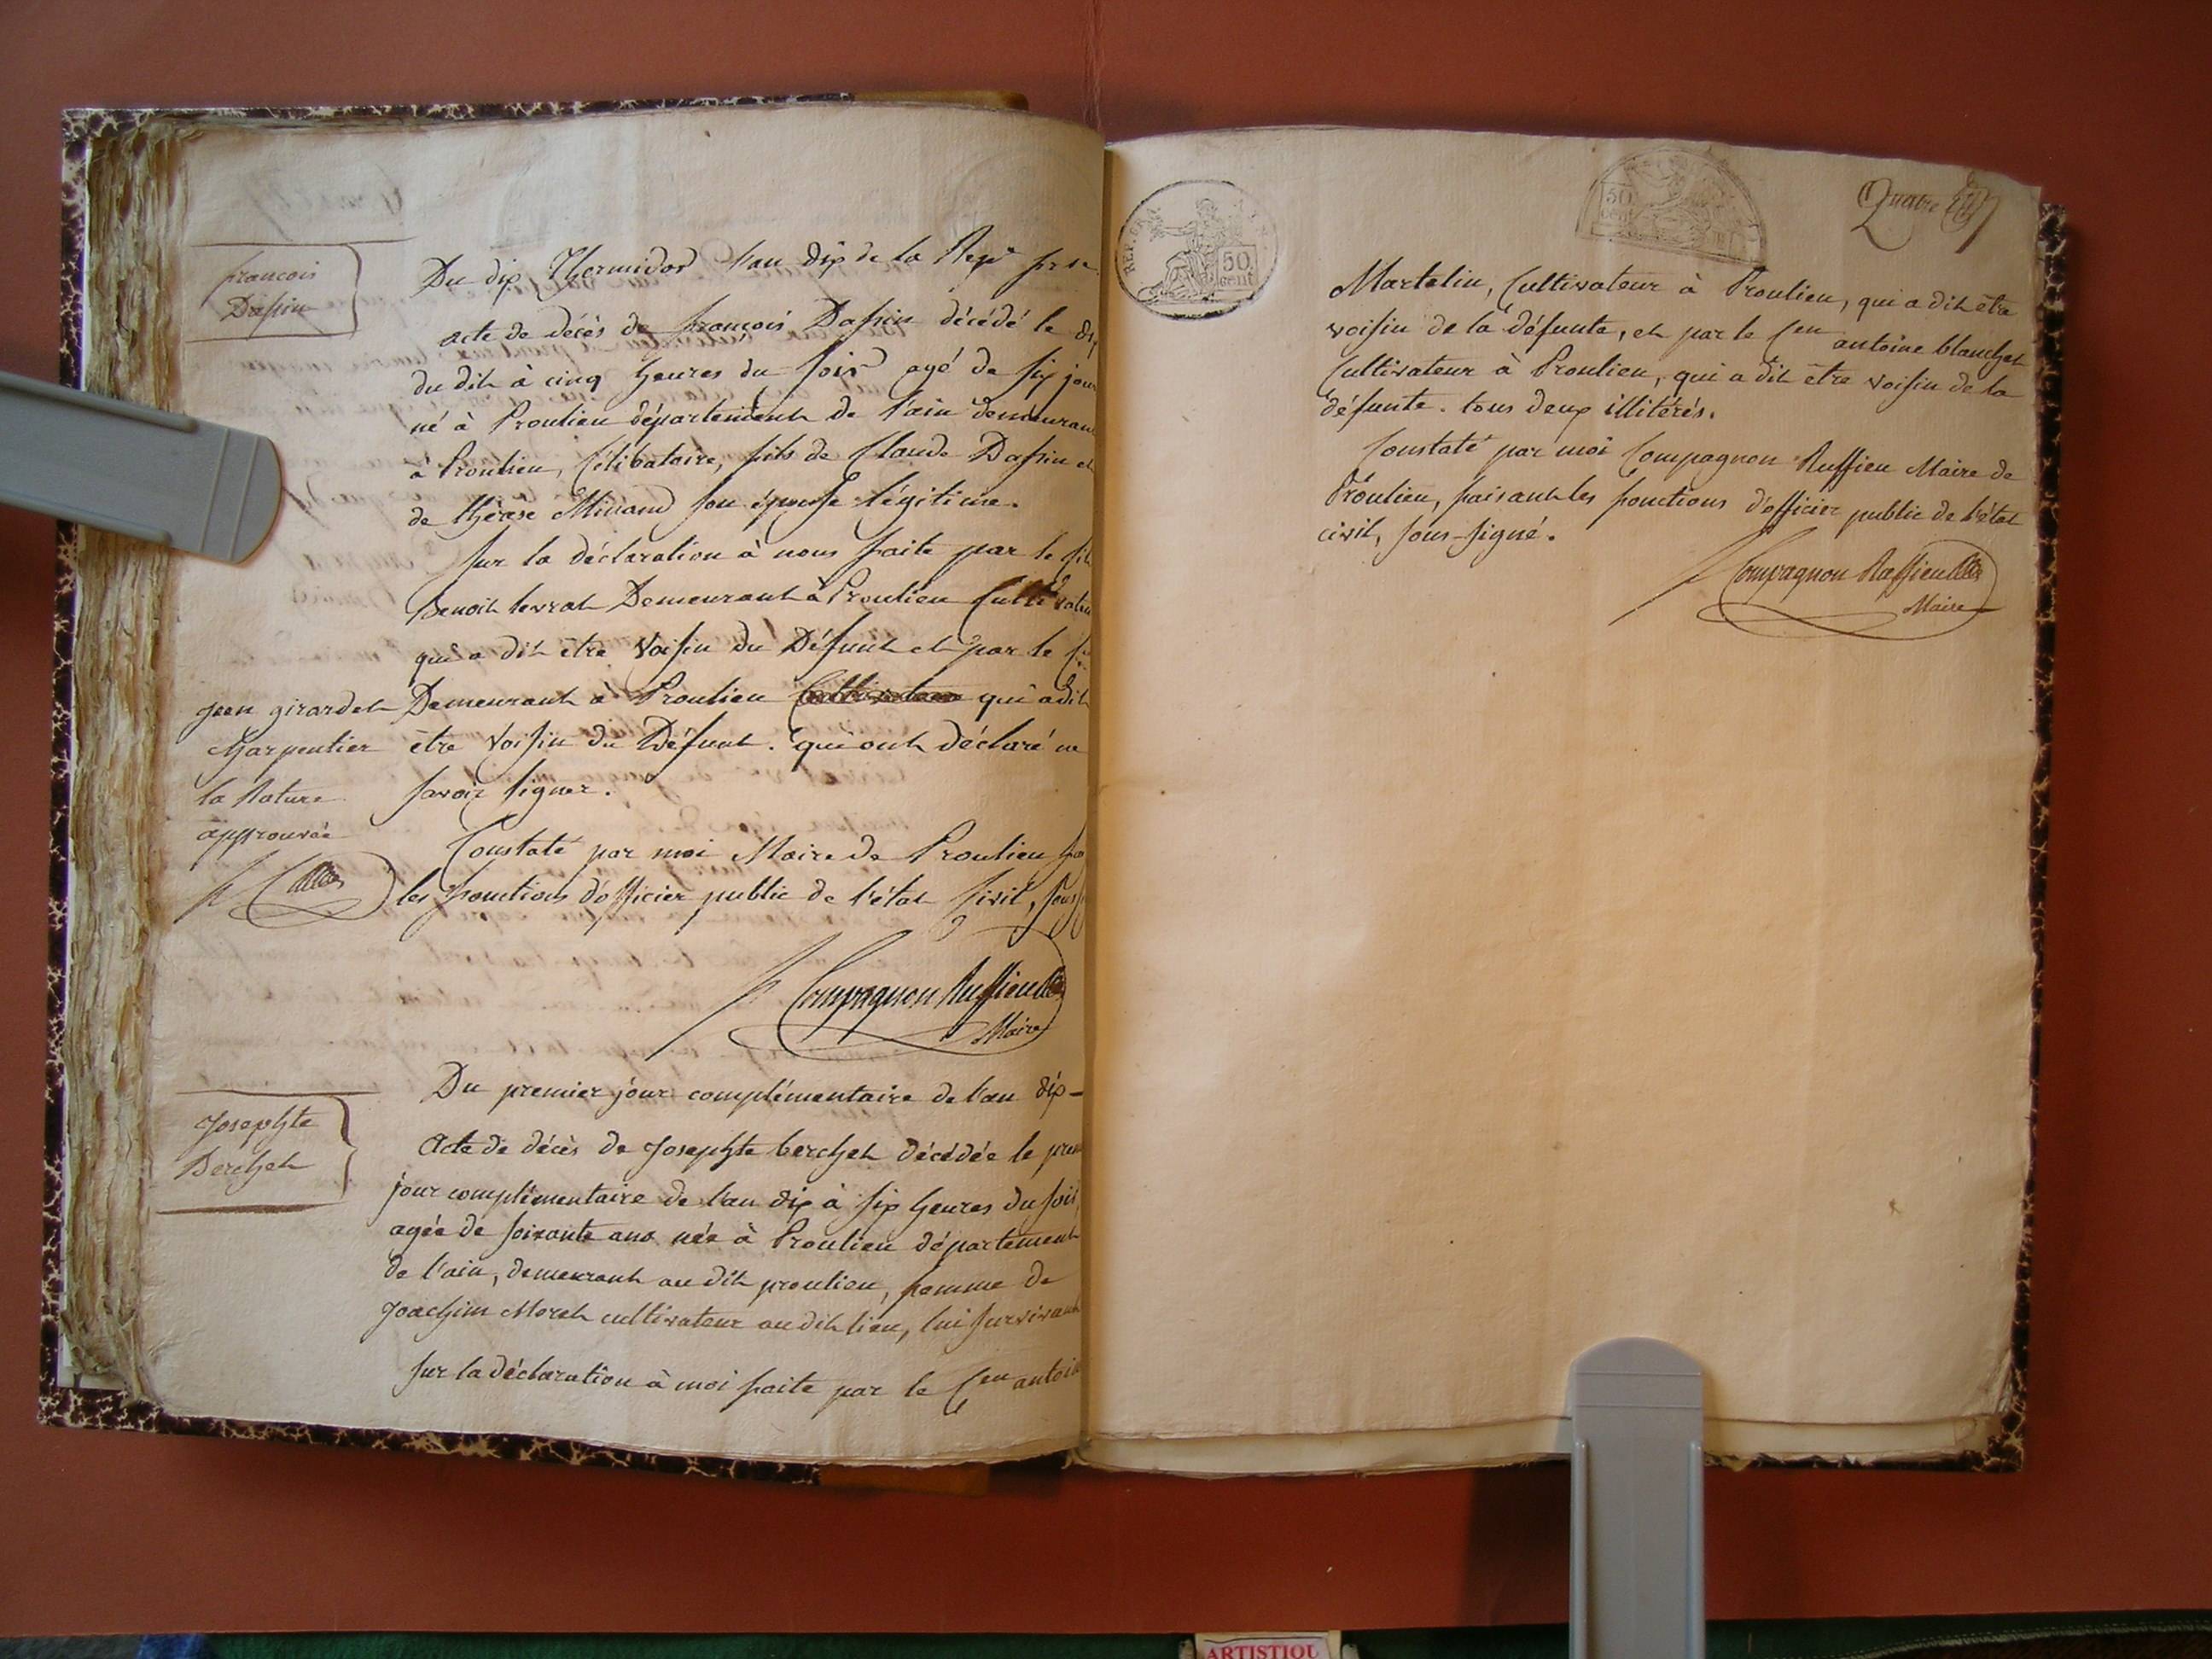 françois
Dassin
Du dix Thermidor l'an dix de la Rep.
acte de décès de françois Dassin décédé le dix
du dit à cinq heures du soir agé de six jours
né à Proulieu département de l'ain demeurant
à Proulieu, Célibataire, fils de Claude Dassin et
de thérèse Milland son épouse légitime.
Sur la déclaration à nous faite par le
Benoit levrat Demeurant à Proulieu
qui a dit être Voisin du Défunt et par le
jean girardet Demeurant a Proulieu Cultivateur qui a dit
charpentier être Voisin du Défunt. qui ont déclaré ne
la Rature savoir signer.
approuvée
Constaté par moi Maire de Proulieu
les fonctions d'officier public de l'état sivil, sous
Compagnon Ruffieu
Maire
Josephte
Berchet
Du premier jour complémentaire de l'an dix -
Acte de décès de Josephte berchet décédée le prem
jour complémentaire de l'an dix à six heures du soir,
agée de soixante ans née à Proulieu département
de l'ain, demeurant au dit proulieu, femme de
Joachim Moret cultivateur au dit lieu, lui survivant
Sur la déclaration à moi faite par le Cen antoin
REP. FRA.
50
cent
50
cent
Quatre
Martelin, Cultivateur à Proulieu, qui a dit être
voisin de la défunte, et par le Cen antoine blanchet
Cultivateur à Proulieu, qui a dit être voisin de la
défunte. tous deux illitérés.
Constaté par moi Compagnon Ruffieu Maire de
Proulieu, faisant les fonctions d'officier public de l'état
civil, sous-signé.
Compagnon Ruffieu
Maire
ARTISTIQU